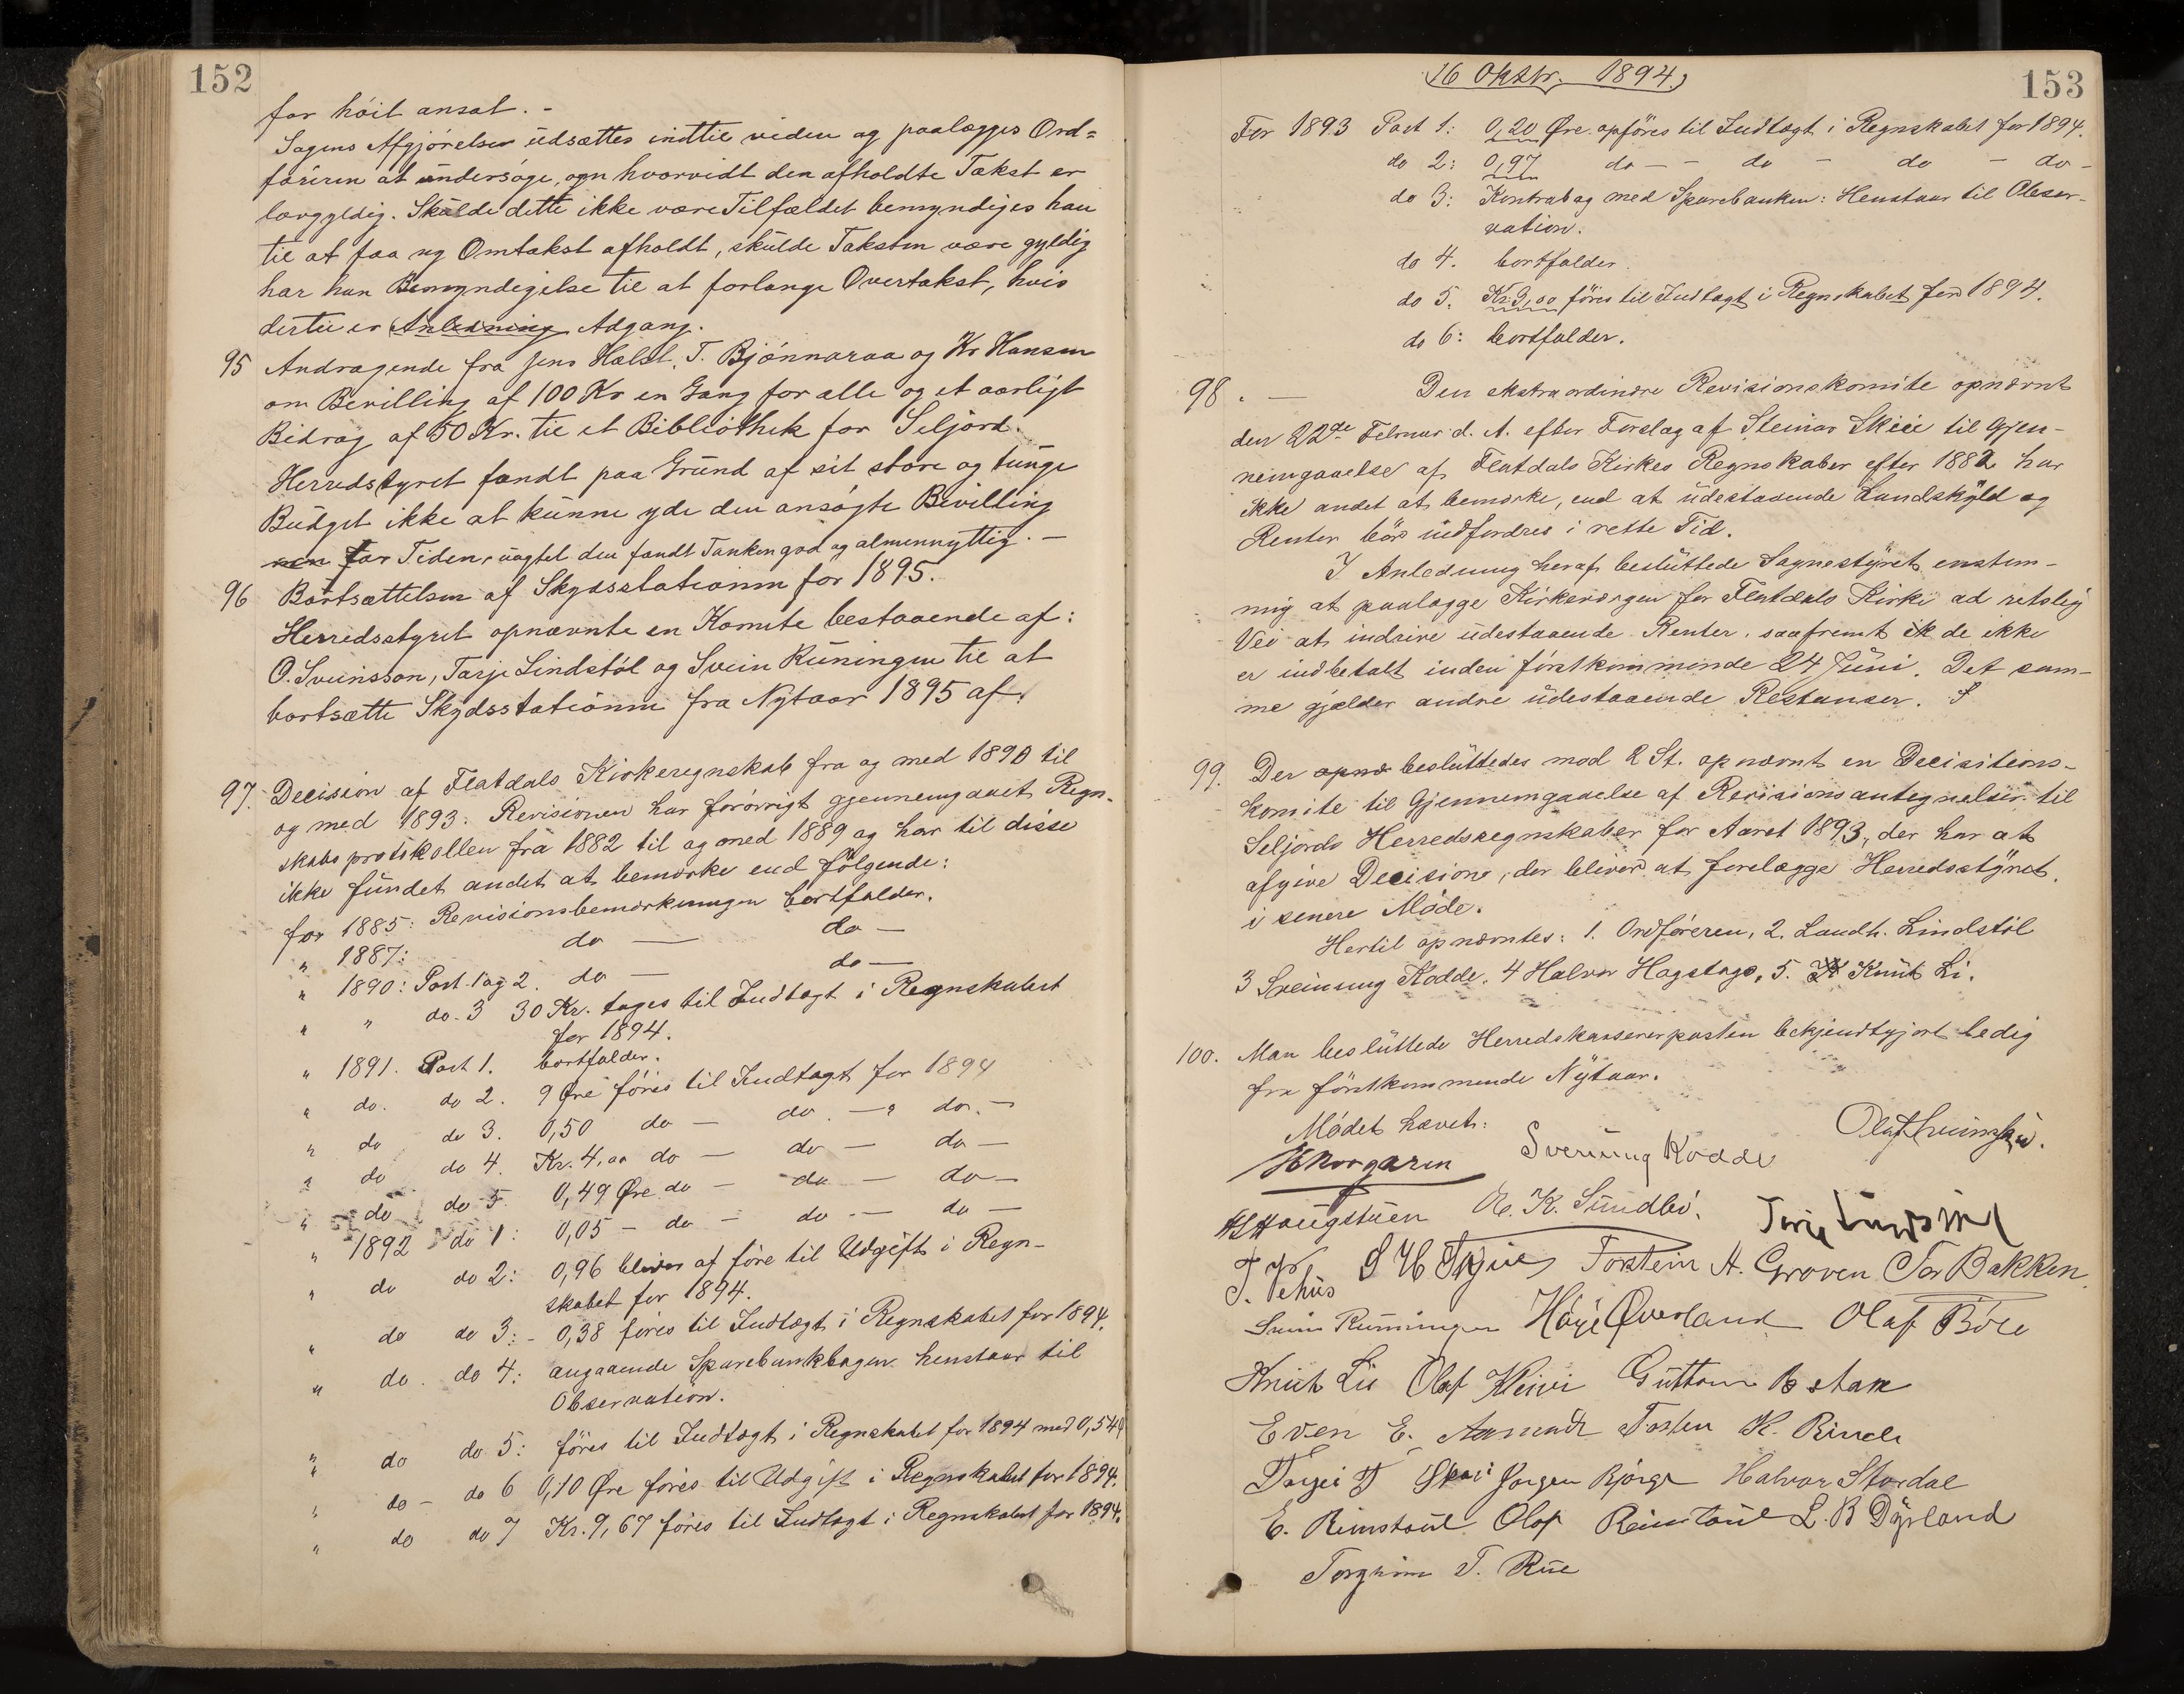 152
for höit ansat. -
Sagens Afgjörelse udsættes indtil videre og paalægges Ord=
föreren at undersöge, om hvorvidt den afholdte Takst er
lovgyldig. Skulde dette ikke være Tilfældet bemyndiges han
til at faa ny Omtakst afholdt, skulde Taksten være gyldig
har han Bemyndigelse til at forlange Overtakst, hvis
dertil er Anledning Adgang.
95 Andragende fra Jens Hald, T. Bjönnaraa og Kr Hansen
om Bevilling af 100 Kr en Gang for alle og et aarligt
Bidrag af 50 Kr. til et Bibliothek for Seljord.
Herredstyret fandt paa Grund af sit store og tunge
Budget ikke at kunne yde den ansögte Bevilling
for Tiden, uagtet den fandt Tanken god og almennyttig. -
96 Bortsættelsen af Skydsstationen for 1895.
Herredsstyret opnævnte en Komite bestaaende af:
O. Sveinsson, Tarje Lindstöl og Svein Runingen til at
bortsætte Skydsstationen fra Nytaar 1895 af.
97. Decision af Flatdals Kirkeregnskab fra og med 1890 til
og med 1893. Revisionen har forövrigt gjennemgaaet Regn-
skabsprotokollen fra 1882 til og med 1889 og har til disse
ikke fundet andet at bemærke end fölgende:
for 1885: Revisionsbemærkningen bortfalder.
" 1887: do — do —
" 1890: Post. 1 og 2. do — do —
" " do. 3 30 Kr. tages til Indtægt i Regnskabet
for 1894.
" 1891. Post 1. bortfalder.
" do. do 2. 9 Øre föres til Indtægt for 1894
" do do 3. 0,50 do — do. — " do. —
" do do 4. Kr. 4,00 do — do — do —
" do do 5. 0,49 Øre do — do — do —
" 1892 do 1: 0,05 — do — do — do —
" do do 2: 0,96 bliver at före til Udgift i Regn-
skabet for 1894.
" do do 3: - 0,38 föres til Indtægt i Regnskabet for 1894.
" do. do 4: angaaende Sparebankbogen henstaar til
Observation.
" do do 5: föres til Indtægt i Regnskabet for 1894 med 0,54
" do - do 6 0,10 Øre föres til Udgift i Regnskabet for 1894.
" do do 7 Kr. 9,67 föres til Indtægt i Regnskabet for 1894.
16 Oktbr. 1894.
153
For 1893 Post 1: 0,20 Øre opföres til Indtægt i Regnskabet for 1894.
do 2: 0,97 do — - do - do - do -
do 3: Kontrabog med Sparebanken: Henstaar til Obser-
vation.
do 4. bortfalder.
do 5. Kr. 3,00 föres til Indtægt i Regnskabet for 1894.
do 6: bortfalder.
98. — Den ekstraordinære Revisionskomite opnævnt
den 22de Februar d. A. efter Forslag af Steinar Skiei til Gjen-
nemgaaelse af Flatdals Kirkes Regnskaber efter 1882 har
ikke andet at bemærke, end at udestaaende Landskyld og
Renter bör indfordres i rette Tid.
I Anledning heraf besluttede Sognestyret enstem-
mig at paalægge Kirkeværgen for Flatdals Kirke ad retslig
Vei at indrive udestaaende Renter, saafremt de ikke
er indbetalt inden förstkommende 24 Juni. Det sam-
me gjælder andre udestaaende Restanser.
99. Der besluttedes mod 2 St. opnævnt en Decisitions-
komite til Gjennemgaaelse af Revisionsantegnelser til
Seljords Herredsregnskaber for Aaret 1893, der har at
afgive Decision, der bliver at forelægge Herredsstyret
i senere Møde.
Hertil opnævntes: 1. Ordföreren, 2. Landh. Lindstöl
3 Sveinung Kodde, 4 Halvor Hagstago, 5. Knut Li.
100. Man besluttede Herredskassererposten bekjendtgjort ledig
fra förstkommende Nytaar.
Mödet hævet.
Sveinung Kodde
H S Haugstuen O. K. Sundbö.
T. Vehus Torstein A. Groven Tor Bakken
Svein Runningen Höye Øverland Olaf Böle
Knut Lii Olaf Kleivi Guttorm Bstan
Even E. Torsten K. Rinde
Targei T Jørgen Bjørge Halvor Stordal
E. Rimstoul Olaf Reimstoul L. B Dyrland
Torgrim T. Rue